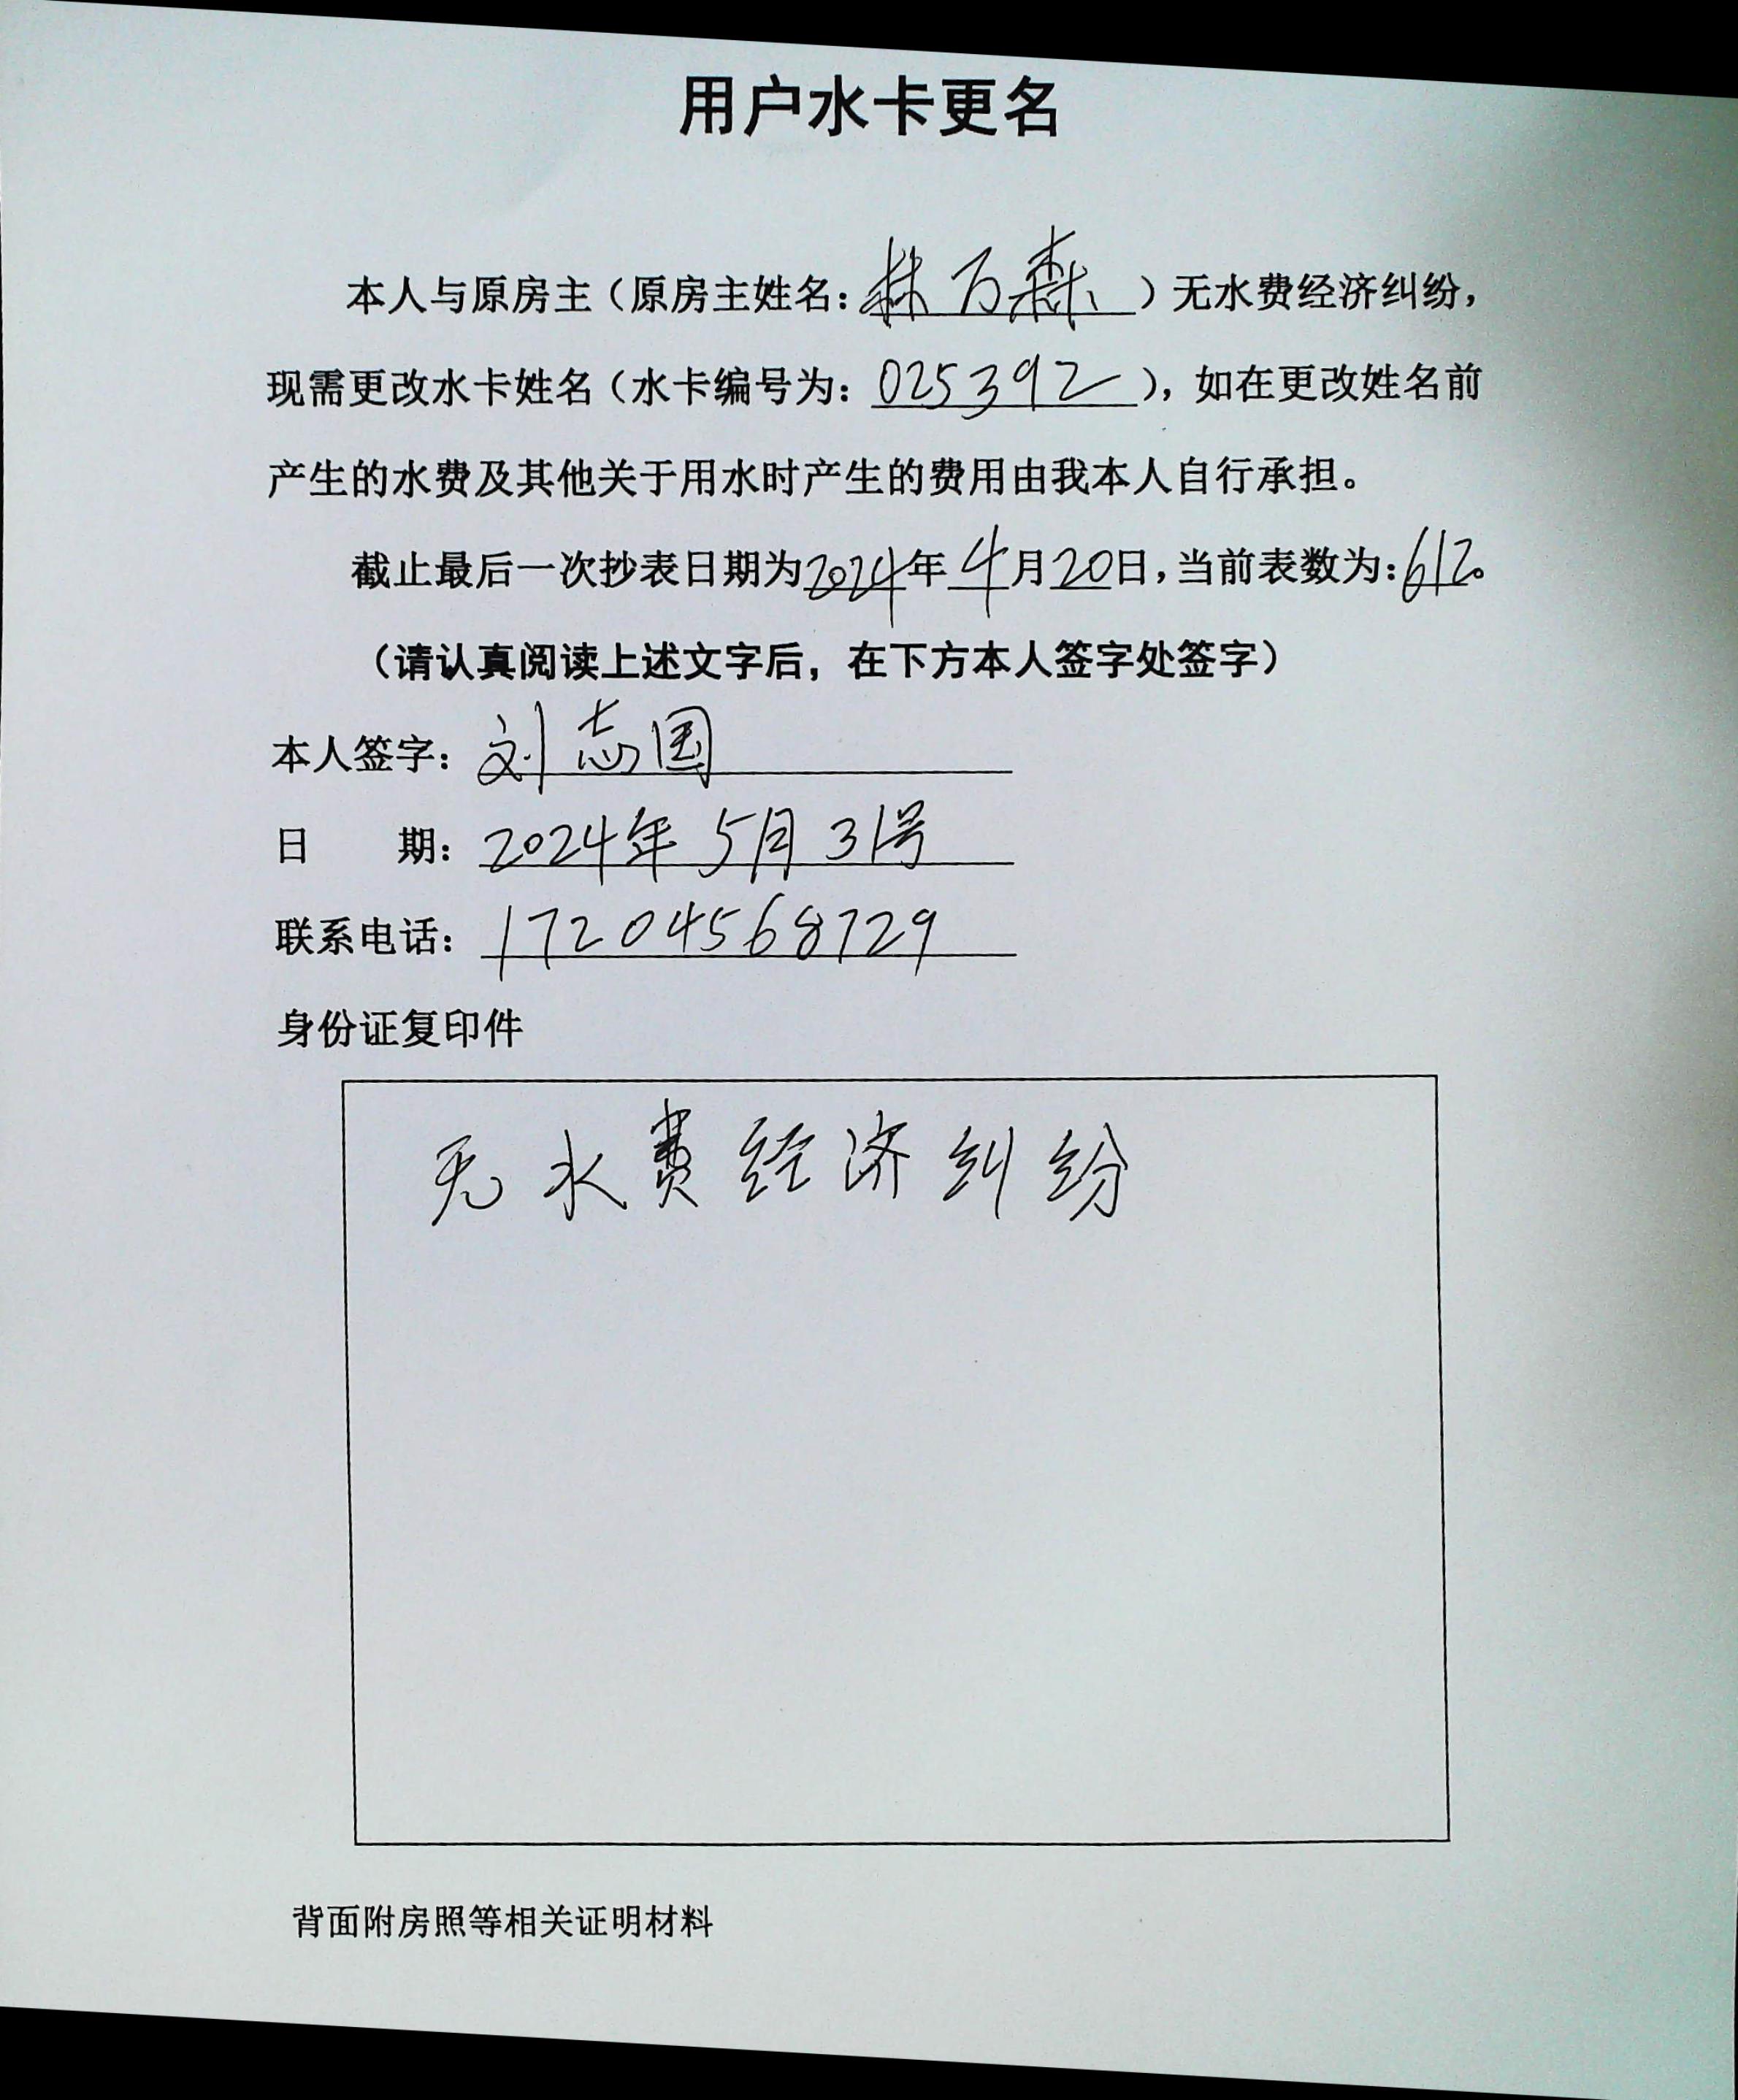 用户水卡更名
本人与原房主（原房主姓名：林万森）无水费经济纠纷，
现需更改水卡姓名（水卡编号为：025392），如在更改姓名前
产生的水费及其他关于用水时产生的费用由我本人自行承担。
截止最后一次抄表日期为2024年4月20日，当前表数为：612。
（请认真阅读上述文字后，在下方本人签字处签字）
本人签字：刘志国
日 期：2024年5月31号
联系电话：17204568729
身份证复印件
无水费经济纠纷
背面附房照等相关证明材料